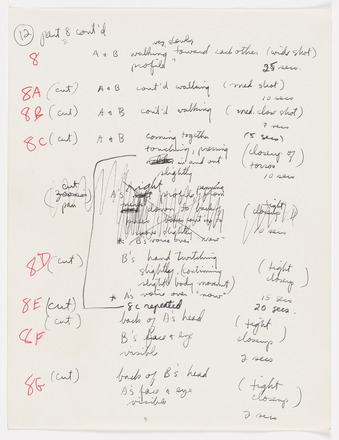 12 part 8 cont'd
very slowly
8 A & B walking toward each other (wide shot)
profile 25 secs.
8A (cut) A & B cont'd walking (med. shot)
10 secs
8B (cut) A & B cont'd walking (med. close shot)
7 secs
8C (cut) A & B coming together (5 secs)
touching, pressing (closeup of
in and out torsos
slightly 10 secs
cut A's right profile
pan down to (tight
closeup)
10 secs
* B's voice over "now"
8D (cut) B's hand twitching
slightly, (continuing (tight
slight body movement) closeup)
* A's voice over "now" 15 secs
8E (cut) 8C repeated 20 secs.
8F (cut) back of A's head (tight
B's face & eye closeup)
visible 2 secs
8G (cut) back of B's head (tight
A's face & eye closeup)
visible 2 secs